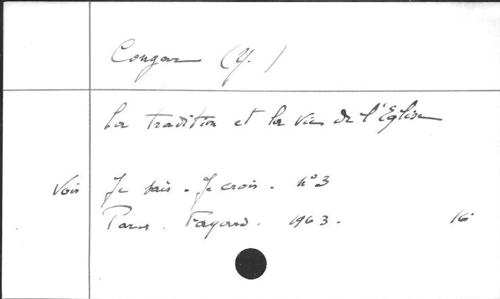 Congar (Y.)
La tradition et la vie de l'Eglise
Voir Je sais - Je crois - n°3
Paris. Fayard. 1963. 16°